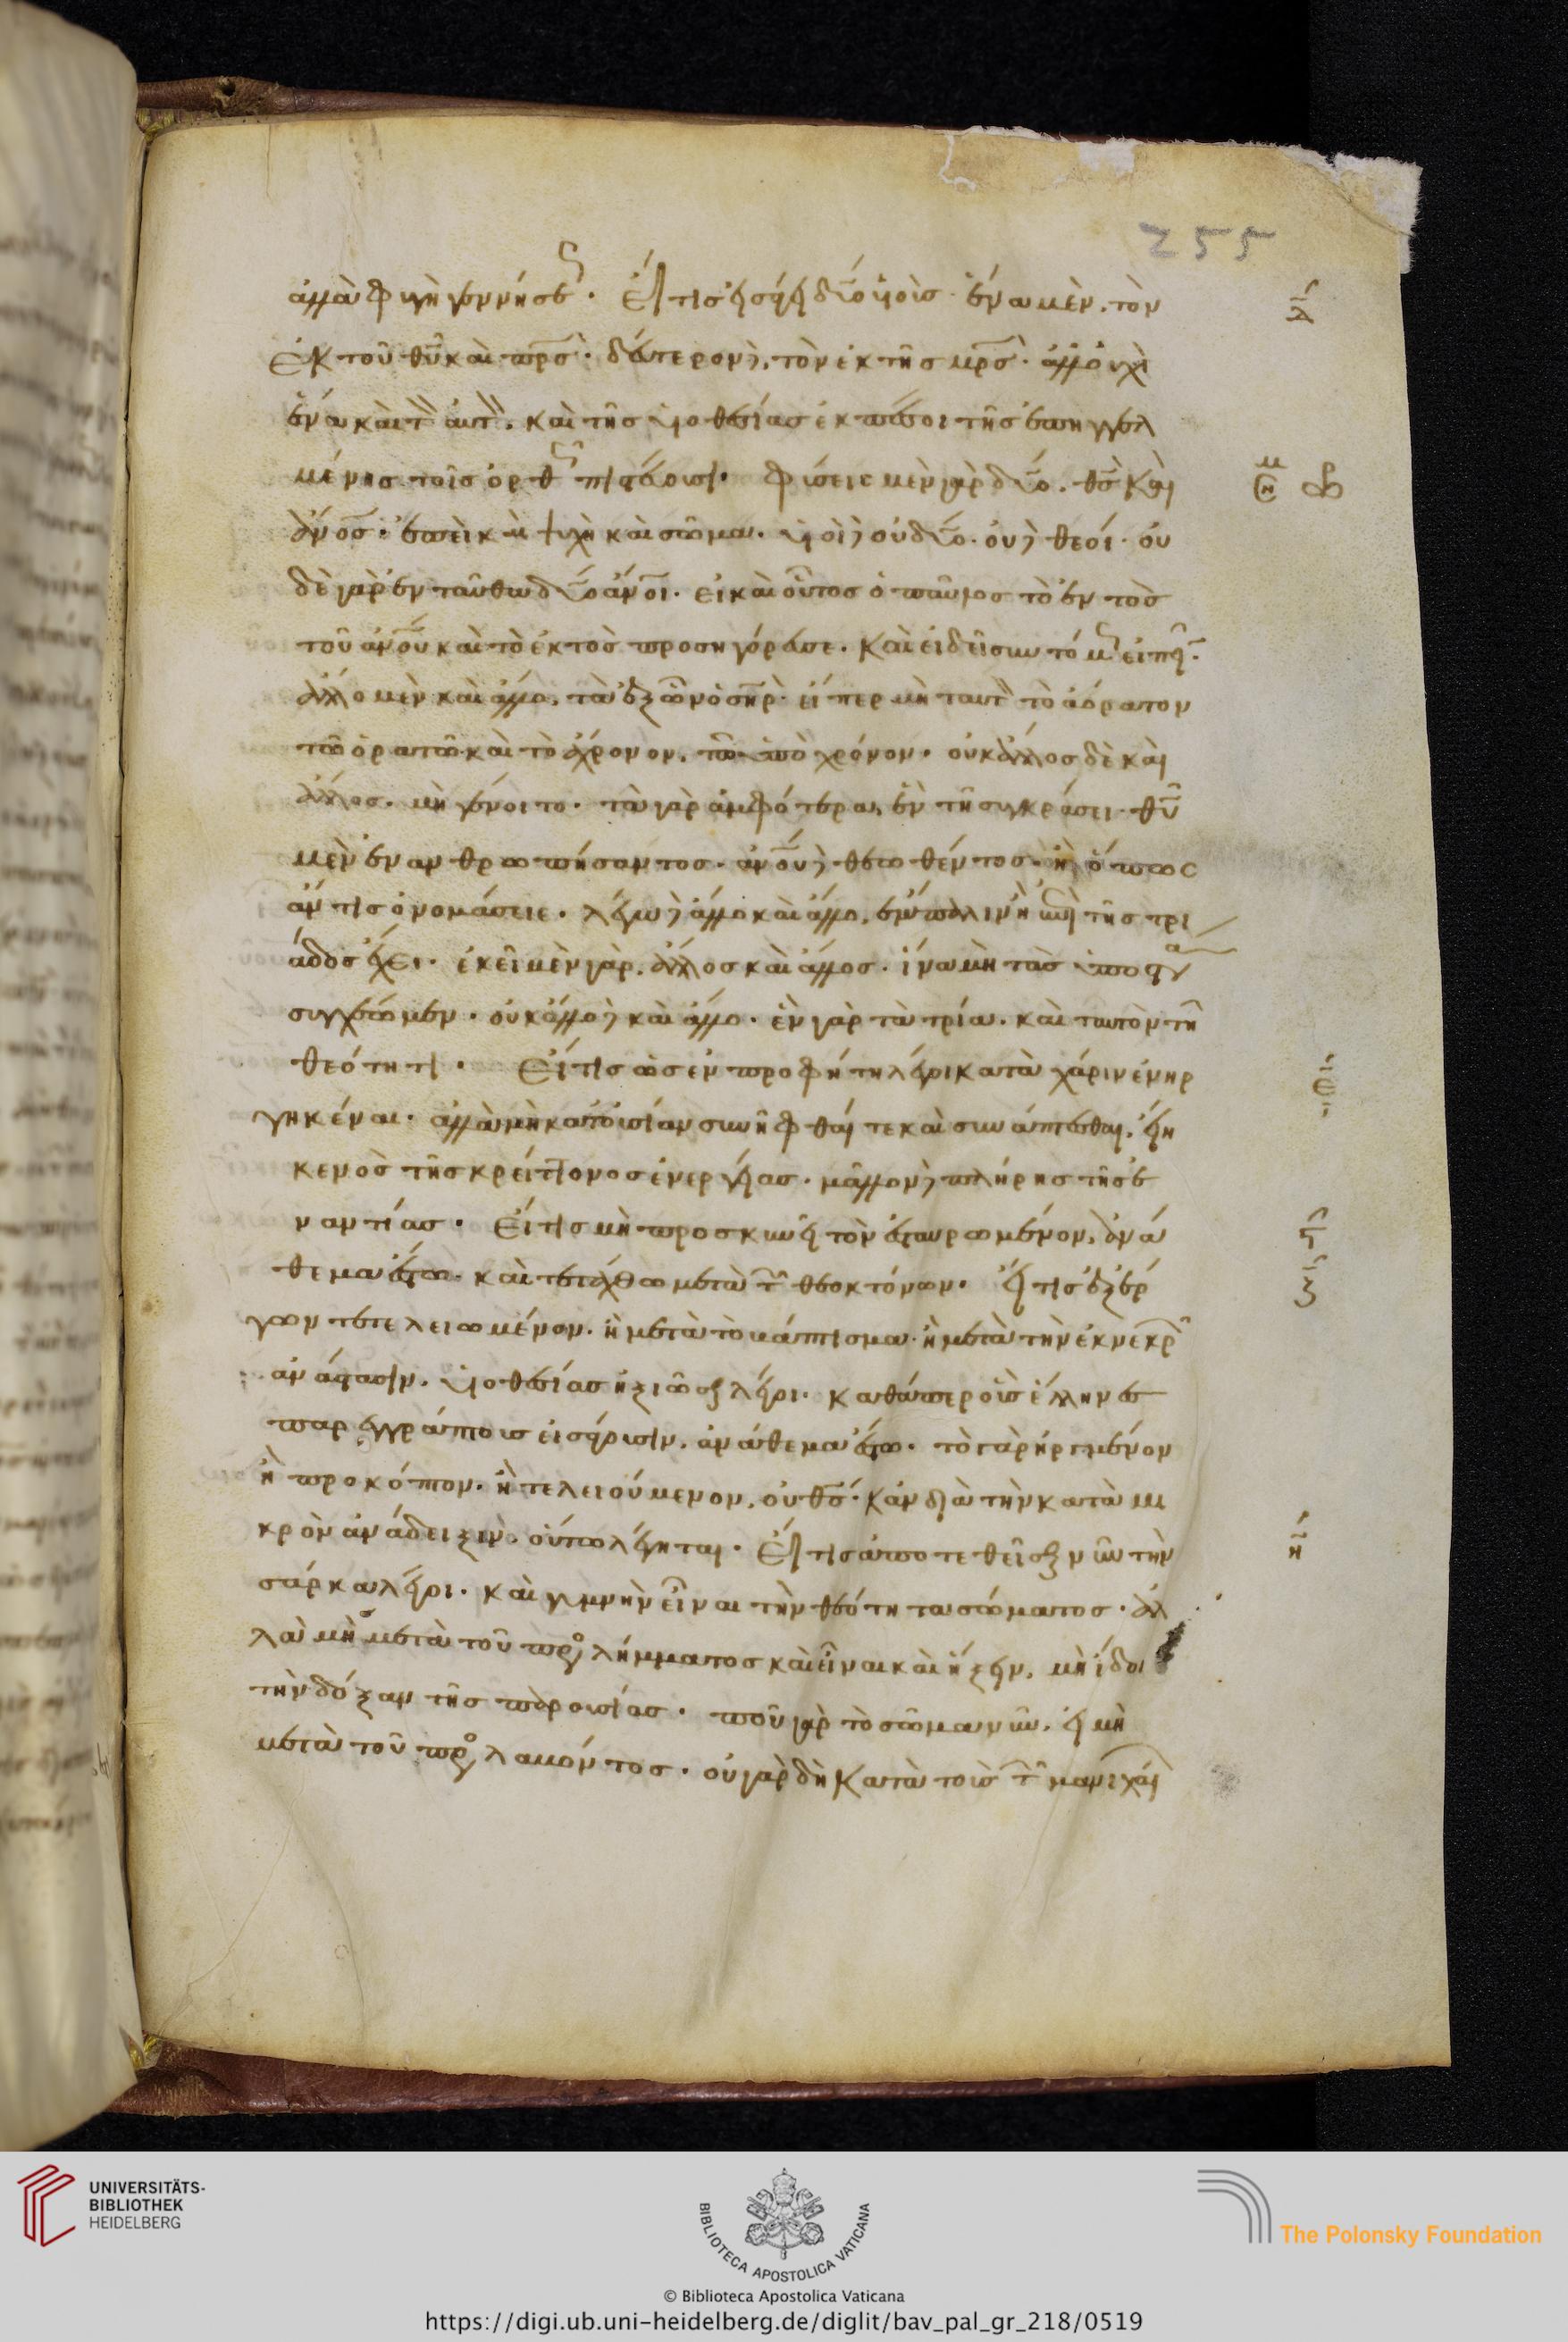 ἀλλὰ φυγὴ γεννήσεως. Εἴ τις εἰσάγει δύο υἱοὺς. ἕνα μὲν, τὸν
ἐκ τοῦ θυ καὶ πρς. δεύτερον δὲ, τὸν ἐκ τῆς μρς. ἀλλ' οὐχὶ
ἕνα καὶ τὸν αὐτόν. καὶ τῆς υἱοθεσίας ἐκπέσοι τῆς ἐπηγγελ
μένης τοῖς ὀρθῶς πιστεύουσι. φύσεις μὲν γὰρ δύο. θς καὶ
ἄνος. ἐπεὶ καὶ ψυχὴ καὶ σῶμα. υἱοὶ δὲ οὐ δύο. οὐδὲ θεοί. οὐ
δὲ γὰρ ἐνταῦθα δύο ἄνοι. εἰ καὶ οὕτως ὁ παῦλος τὸ ἐντὸς
τοῦ ἀνου καὶ τὸ ἐκτὸς προσηγόρευσε. Καὶ εἰ δεῖ συντόμως εἰπεῖν.
ἄλλο μὲν καὶ ἄλλο, τὰ ἐξ ὧν ὁ σηρ. εἴπερ μὴ ταυτὸν τὸ ἀόρατον
τῶ ὁρατῶ καὶ τὸ ἄχρονον, τῶ ὑπὸ χρόνον. οὐκ ἄλλος δὲ καὶ
ἄλλος. μὴ γένοιτο. τὰ γὰρ ἀμφότερα, ἓν τῆ συγκράσει. θυ
μὲν ἐνανθρωπήσαντος. ἀνου δὲ θεωθέντος. ἢ ὅπως
ἄν τις ὀνομάσειε. λέγω δὲ ἄλλο καὶ ἄλλο, ἔμπαλιν ἢ ἐπὶ τῆς τρι
άδος ἔχει. ἐκεῖ μὲν γὰρ, ἄλλος καὶ ἄλλος. ἵνα μὴ τὰς ὑποστά
συγχέωμεν. οὐκ ἄλλο δὲ καὶ ἄλλο. ἓν γὰρ τὰ τρία. καὶ ταυτὸν τῆ
θεότητι. Εἴ τις ὡς ἐν προφήτη λέγοι κατὰ χάριν ἐνηρ
γηκέναι. ἀλλὰ μὴ κατ' οὐσίαν συνῆφθαί τε καὶ συνάπτεσθαι, εἴη
κενὸς τῆς κρείττονος ἐνεργείας. μᾶλλον δὲ πλήρης τῆς ἐ
ναντίας. Εἴ τις μὴ προσκυνεῖ τὸν ἐσταυρωμένον, ἀνά
θεμα ἔστω. καὶ τετάχθω μετὰ τῶν θεοκτόνων. Εἴ τις ἐξ ἔρ
γων τετελειωμένον. ἢ μετὰ τὸ βάπτισμα. ἢ μετὰ τὴν ἐκ νεκρῶν
ἀνάστασιν. υἱοθεσίας ἠξιῶσθαι λέγοι. καθάπερ οὓς ἕλληνες
παρεγγράπτους εἰσάγουσιν, ἀνάθεμα ἔστω. τὸ γὰρ ἠργμένον
ἢ προκόπτον. ἢ τελειούμενον, οὐ θς. κἂν διὰ τὴν κατὰ μι
κρὸν ἀνάδειξιν. οὕτω λέγηται. Εἴ τις ἀποτεθεῖσθαι νῦν τὴν
σάρκα λέγοι. καὶ γυμνὴν εἶναι τὴν θεότητα σώματος. ἀλ
λὰ μὴ μετὰ τοῦ προσλήμματος καὶ εἶναι καὶ ἥξειν, μὴ ἴδοι
τὴν δόξαν τῆς παρουσίας. ποῦ γὰρ τὸ σῶμα νῦν, εἰ μὴ
μετὰ τοῦ προσλαβόντος. οὐ γὰρ δὴ κατὰ τοὺς τῶν μανιχαί
255
δ
ε
ς
ζ
η
© Biblioteca Apostolica Vaticana
https://digi.ub.uni-heidelberg.de/diglit/bav_pal_gr_218/0519
UNIVERSITÄTS-
BIBLIOTHEK
HEIDELBERG
BIBLIOTECA APOSTOLICA VATICANA
The Polonsky Foundation